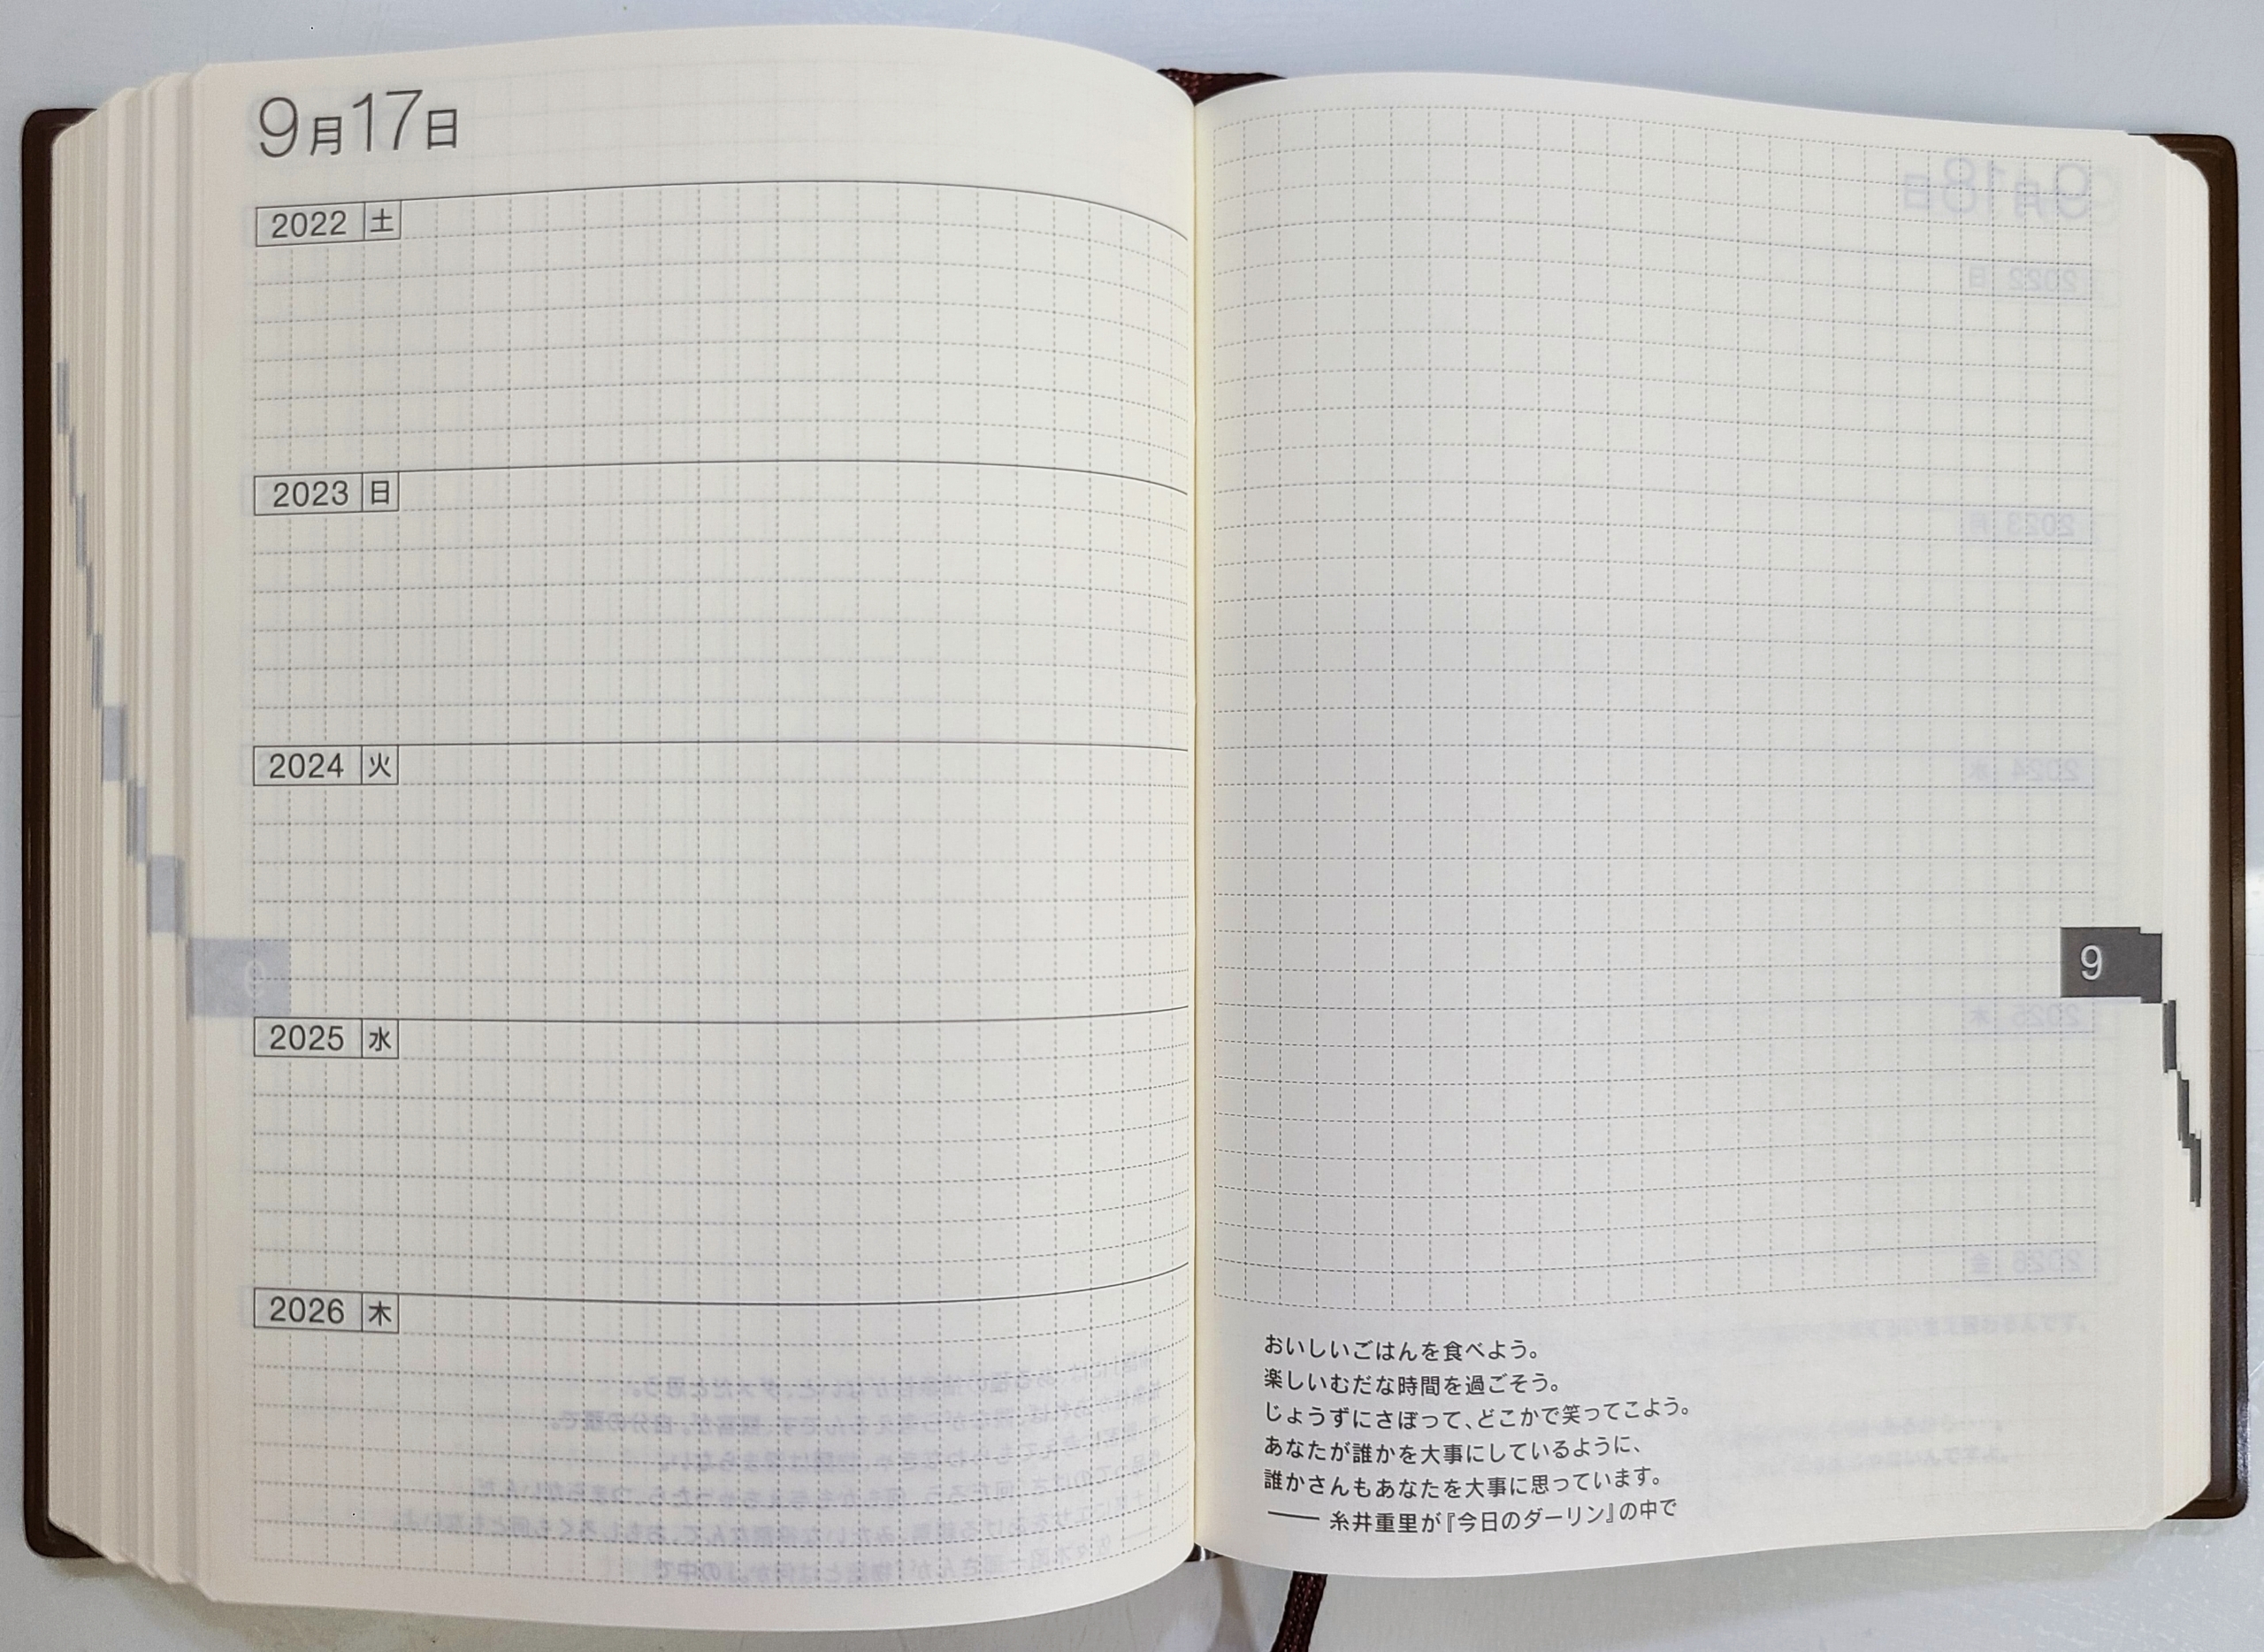 9月17日
2022 土
2023 日
2024 火
2025 水
2026 木
9
おいしいごはんを食べよう。
楽しいむだな時間を過ごそう。
じょうずにさぼって、どこかで笑ってこよう。
あなたが誰かを大事にしているように、
誰かさんもあなたを大事に思っています。
── 糸井重里が『今日のダーリン』の中で